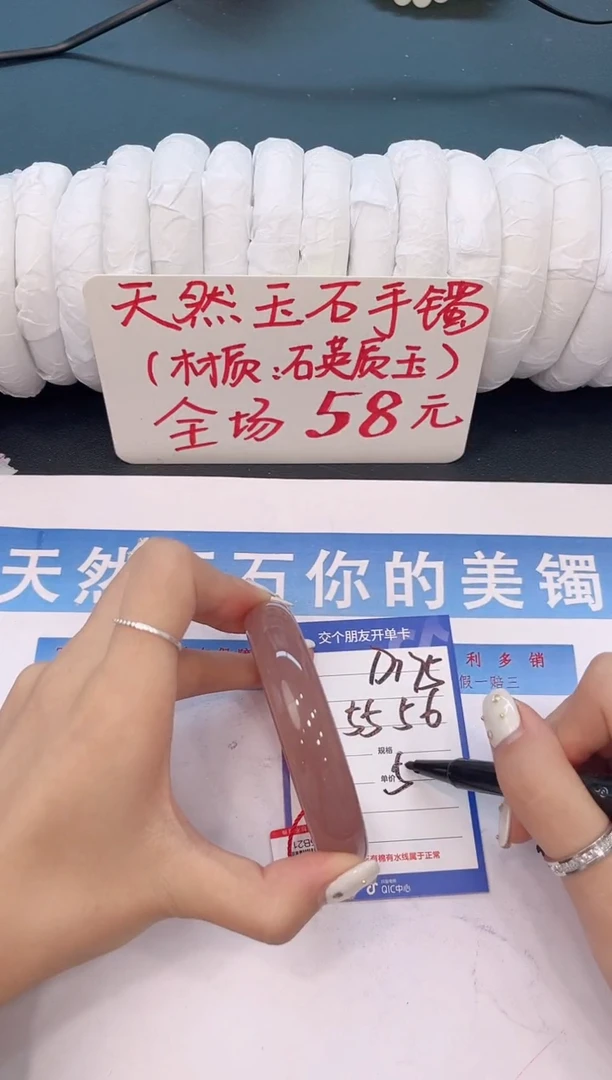 天然玉石手镯
（材质：石英质玉）
全场58元
天然 石你的美镯
利多销
假一赔三
交个朋友开单卡
5556
规格
单价 5
有棉有水线属于正常
QIC中心